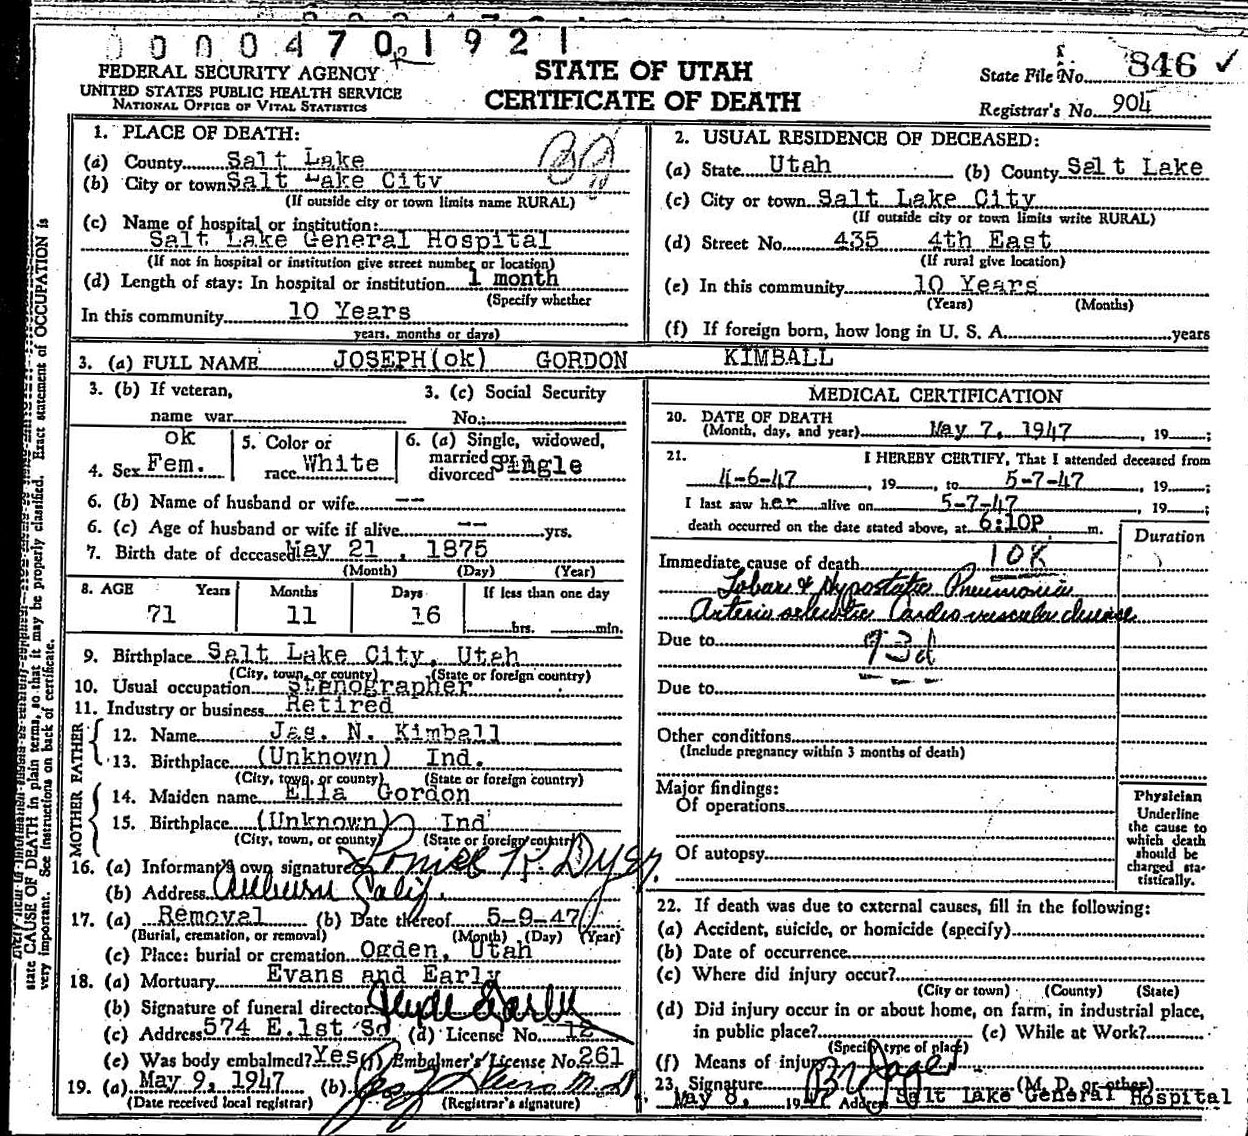 0 0 0 0 4 7 0 R 1 9 2 1
FEDERAL SECURITY AGENCY
UNITED STATES PUBLIC HEALTH SERVICE
NATIONAL OFFICE OF VITAL STATISTICS
STATE OF UTAH
CERTIFICATE OF DEATH
State File No. 846 ✓
Registrar's No. 904
1. PLACE OF DEATH:
(a) County Salt Lake
(b) City or town Salt Lake City
(If outside city or town limits name RURAL)
(c) Name of hospital or institution:
Salt Lake General Hospital
(If not in hospital or institution give street number or location)
(d) Length of stay: In hospital or institution 1 month
(Specify whether
In this community 10 Years
years, months or days)
2. USUAL RESIDENCE OF DECEASED:
(a) State Utah (b) County Salt Lake
(c) City or town Salt Lake City
(If outside city or town limits write RURAL)
(d) Street No. 435 4th East
(If rural give location)
(e) In this community 10 Years
(Years) (Months)
(f) If foreign born, how long in U. S. A. years
3. (a) FULL NAME JOSEPH(ok) GORDON KIMBALL
3. (b) If veteran,
name war
3. (c) Social Security
No.:
4. Sex ok Fem.
5. Color or
race White
6. (a) Single, widowed,
married or
divorced Single
6. (b) Name of husband or wife --
6. (c) Age of husband or wife if alive -- yrs.
7. Birth date of deceased May 21, 1875
(Month) (Day) (Year)
8. AGE Years Months Days If less than one day
71 11 16 hrs. min.
9. Birthplace Salt Lake City, Utah
(City, town, or county) (State or foreign country)
10. Usual occupation Stenographer
11. Industry or business Retired
FATHER
12. Name Jas. N. Kimball
13. Birthplace (Unknown) Ind.
(City, town, or county) (State or foreign country)
MOTHER
14. Maiden name Ella Gordon
15. Birthplace (Unknown) Ind
(City, town, or county) (State or foreign country)
16. (a) Informant's own signature R. Dyer.
(b) Address Auburn Calif.
17. (a) Removal (b) Date thereof 5-9-47
(Burial, cremation, or removal) (Month) (Day) (Year)
(c) Place: burial or cremation Ogden, Utah
18. (a) Mortuary Evans and Early
(b) Signature of funeral director
(c) Address 574 E.1st So (d) License No. 12
(e) Was body embalmed? Yes (f) Embalmer's License No. 261
19. (a) May 9, 1947 (b) M.D.
(Date received local registrar) (Registrar's signature)
MEDICAL CERTIFICATION
20. DATE OF DEATH
(Month, day, and year) May 7, 1947, 19 ;
21. I HEREBY CERTIFY, That I attended deceased from
4-6-47, 19 , to 5-7-47, 19 ;
I last saw her alive on 5-7-47, 19 ;
death occurred on the date stated above, at 6:10P m.
Duration
Immediate cause of death 108
Lobar & Hypostatic Pneumonia
Arterio sclerotic Cardio-vascular disease
Due to 93d
Due to
Other conditions
(Include pregnancy within 3 months of death)
Major findings:
Of operations
Of autopsy
Physician
Underline
the cause to
which death
should be
charged sta-
tistically.
22. If death was due to external causes, fill in the following:
(a) Accident, suicide, or homicide (specify)
(b) Date of occurrence
(c) Where did injury occur?
(City or town) (County) (State)
(d) Did injury occur in or about home, on farm, in industrial place,
in public place? (e) While at Work?
(Specify type of place)
(f) Means of injury
23. Signature (M. D. or other)
May 8, 1947 Address Salt Lake General Hospital
state CAUSE OF DEATH in plain terms, so that it may be properly classified. Exact statement of OCCUPATION is
very important. See instructions on back of certificate.